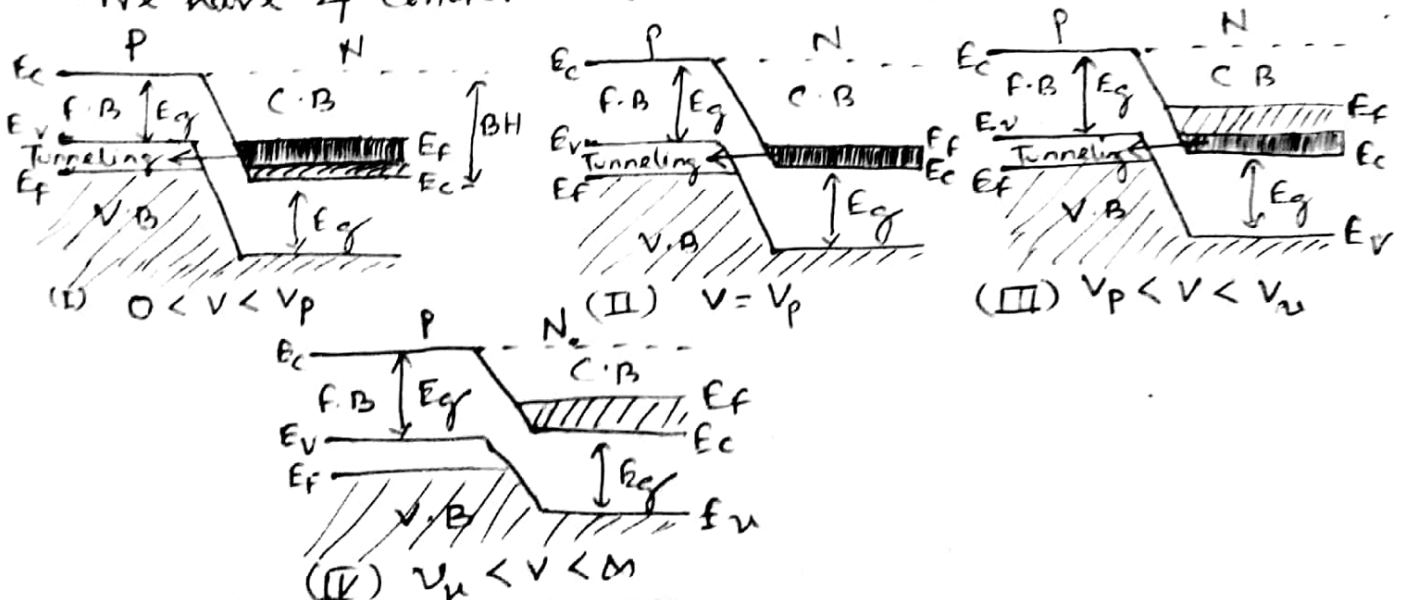 We have 4
P N
Ec
F.B Eg C.B
BH
Ev
Tunneling Ef
Ef Ec
V.B Eg
(I) 0 < V < Vp
P N
Ec
F.B Eg C.B
Ev Ef
Tunneling
Ef Ec
V.B Eg
(II) V = Vp
P N
Ec
F.B Eg C B
Ef
Ev
Tunneling Ec
Ef
V.B Eg
Ev
(III) Vp < V < Vv
P N
Ec
C.B
F.B Eg Ef
Ev Ec
Ef Eg
V.B Ev
(IV) Vv < V <